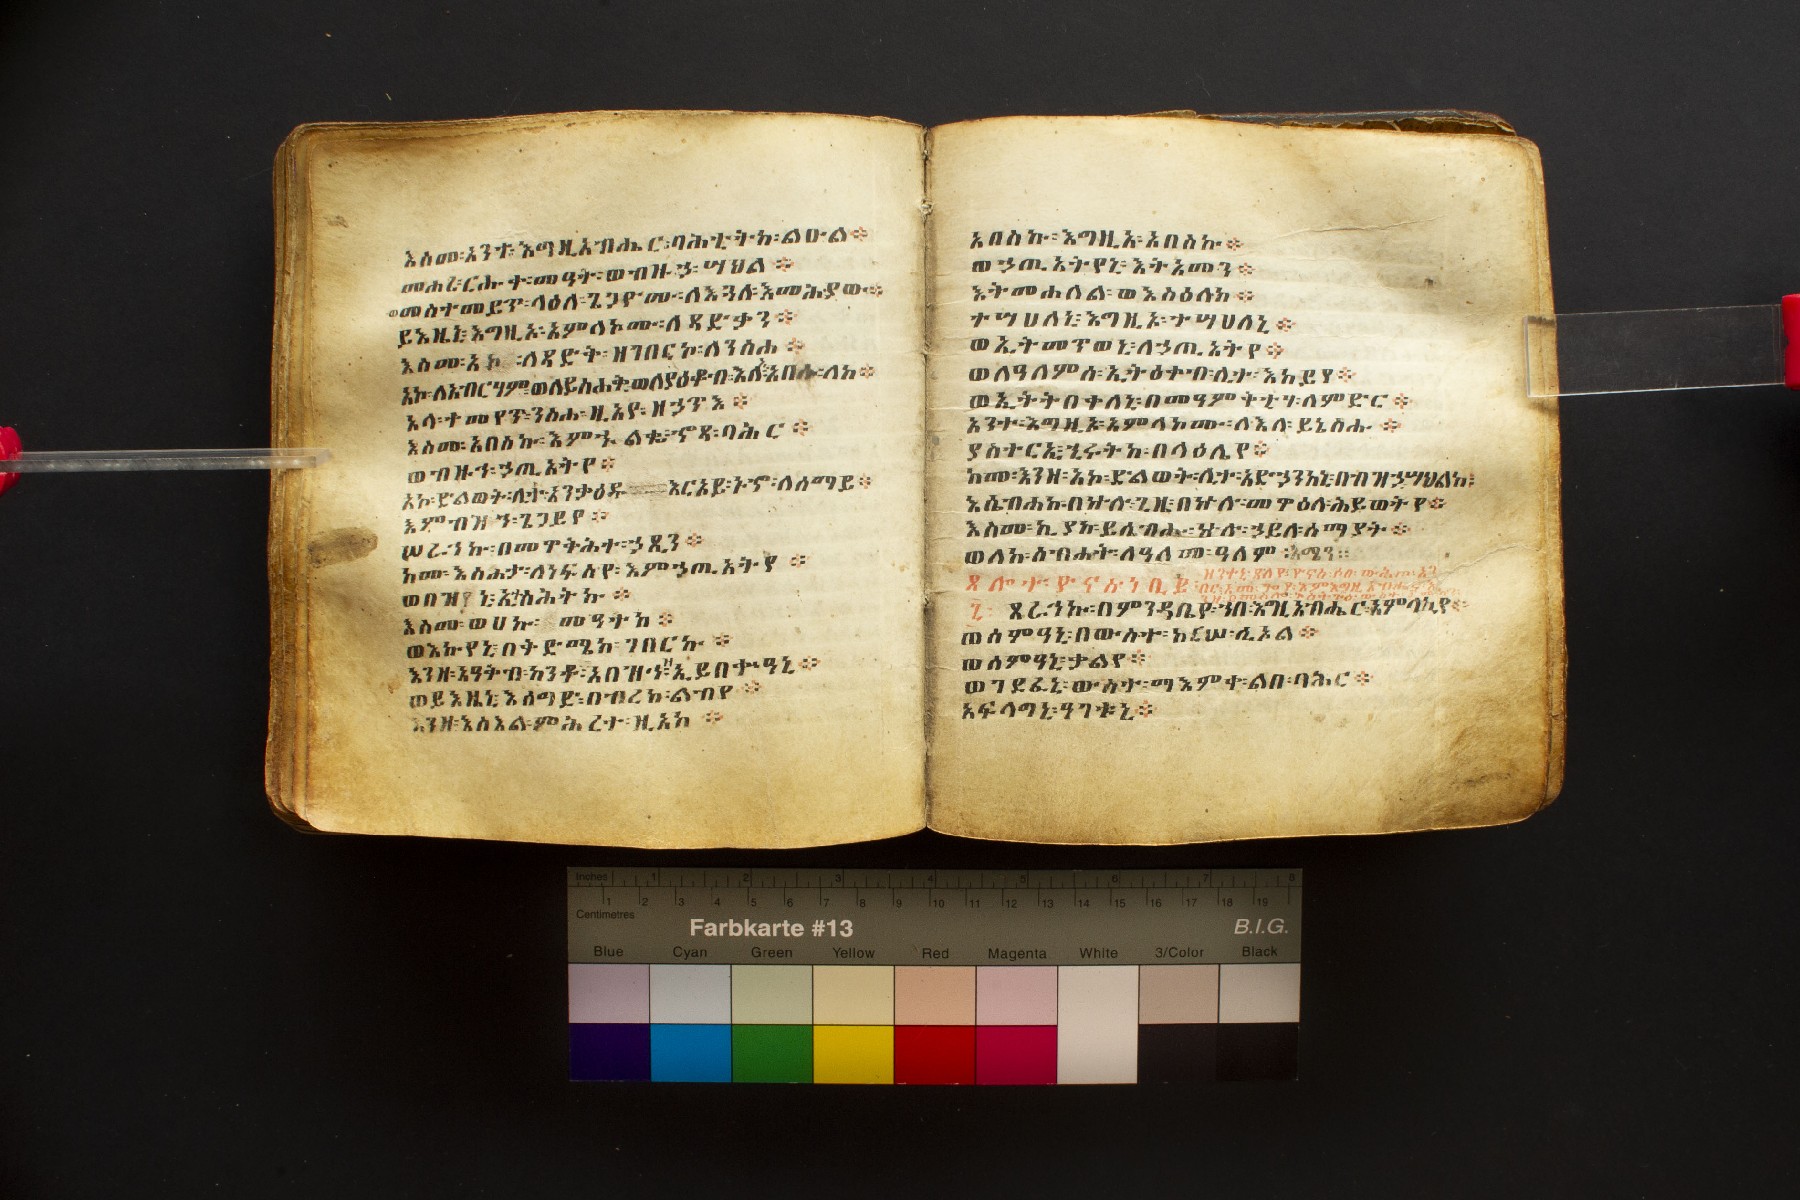 እስመ፡አንተ፡እግዚአብሔር፡ባሕቲትከ፡ልዑል፨
መሐሪ፡ርኁ ተ፡መዓት፡ወብዙኃ፡ሣህል፨
ወመስተመይጥ፡ላዕለ፡ጌጋዮሙ፡ለእጓለ፡እመሕያው፨
ይእዜኒ፡እግዚኦ፡አምላኮሙ፡ለጻድቃን፨
እስመ፡አኮ፡ለጻድት፡ዘገበርኮ፡ለንስሐ፨
አኮ፡ለአብርሃም፡ወለይስሐት፡ወለያዕቆብ፡እለ፡አበሱ፡ለከ፨
አላ፡ተመየጥ፡ንስሐ፡ዚአየ፡ዘኃጥእ፨
እስመ፡አበስኩ፡እምኍልቈ፡ኖጻ፡ባሕር፨
ወብዙኅ፡ኃጢአትየ፨
አኮ፡ድልወት፡ሊተ፡አንቃዕዱ እርአይ፡ኑኆ፡ለሰማይ፨
እምብዝኀ፡ጌጋይየ፨
ሠረኀኩ፡በመጥትሕተ፡ኃጺን፨
ከመ፡እስሐታ፡ለነፍስየ፡እምኃጢአትየ፨
ወበዝ ኒ፡አ ስሕትኩ፨
እስመ፡ወሀኩ፡ መዓተከ፨
ወእኩየኒ፡በቅድሜከ፡ገበርኩ፨
እንዘ፡አዓትብ፡አንቶ፡አበዝኀ፡ኢይበቍዓኒ፨
ወይእዜኒ፡እሰግድ፡በብረከ፡ልብየ፨
እንዘ፡እስእል፡ምሕረተ፡ዚአከ፨
አበስኩ፡እግዚኦ፡አበስኩ፨
ወኃጢአትየኒ፡እትአመን፨
እትመሐለል፡ወእስዕለከ፨
ተሣሀለኒ፡እግዚኦ፡ተሣሀለኒ፨
ወኢትመጥወኒ፡ለኃጢአትየ፨
ወለዓለምሰ፡ኢትዕተብ፡ሊተ፡እከይየ፨
ወኢትትበቀለኒ፡በመዓምቅቲሃ፡ለምድር፨
አንተ፡እግዚኦ፡አምላከሙ፡ለእለ፡ይኔስሑ፨
ያስተርኢ፡ኂሩትከ፡በላዕሌየ፨
ከመ፡እንዘ፡አኮ፡ድልወት፡ሊተ፡አድኃንከኒ፡በብዝኃ፡ሣህልከ፡
እሴብሐከ፡በኵሉ፡ጊዜ፡በኵሉ፡መዋዕለ፡ሕይወትየ፨
እስመ፡ኪያከ፡ይሴብሑ፡ኵሉ፡ኃይለ፡ሰማያት፨
ወለከ፡ስብሐት፡ለዓለመ፡ዓለም፡አሜን፡፡
ጸሎተ፡ዮናስ፡ነቢይ፡
ጸራኅኩ፡በምንዳቤየ፡ኀበ፡እግዚአብሔር፡አምላኪየ፨
ወሰምዓኒ፡በውስተ፡ከርሠ፡ሲኦል፨
ወሰምዓኒ፡ቃልየ፨
ወገደፈኒ፡ውስተ፡ማእምቀ፡ልበ፡ባሕር፨
አፍላግኒ፡ዓገቱኒ፨
Inches 1 2 3 4 5 6 7 8
Centimetres 1 2 3 4 5 6 7 8 9 10 11 12 13 14 15 16 17 18 19
Farbkarte #13 B.I.G.
Blue Cyan Green Yellow Red Magenta White 3/Color Black